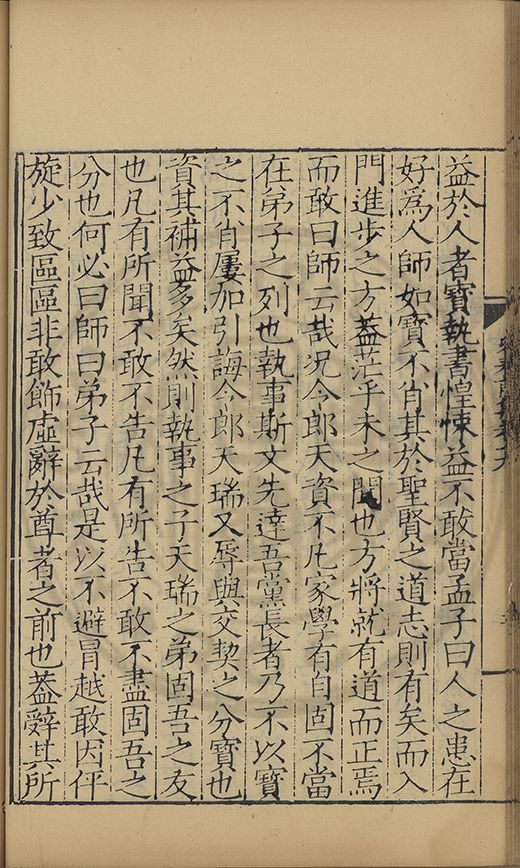 益於人者寶執書惶悚益不敢當孟子曰人之患在
好爲人師如寶不肖其於聖賢之道志則有矣而入
門進步之方葢茫乎未之聞也方將就有道而正焉
而敢曰師云哉况令郎天資不凡家學有自固不當
在弟子之列也執事斯文先達吾黨長者乃不以寶
之不肖屢加引誨令郎天瑞又辱與交契之分寶也
資其補益多矣然則執事之子天瑞之弟固吾之友
也凡有所聞不敢不告凡有所告不敢不盡固吾之
分也何必曰師曰弟子云哉是以不避冒越敢因伻
旋少致區區非敢飾虛辭於尊者之前也葢辭其所